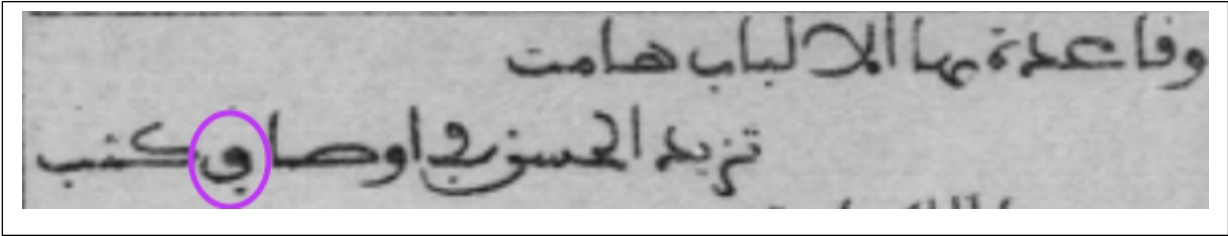 وقاعدة بها الالباب هامت
تزيد الحسن في اوصاف كتب